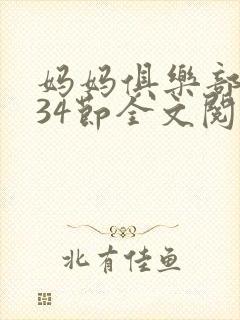 妈妈俱樂部
34節全文閱
北有佳鱼